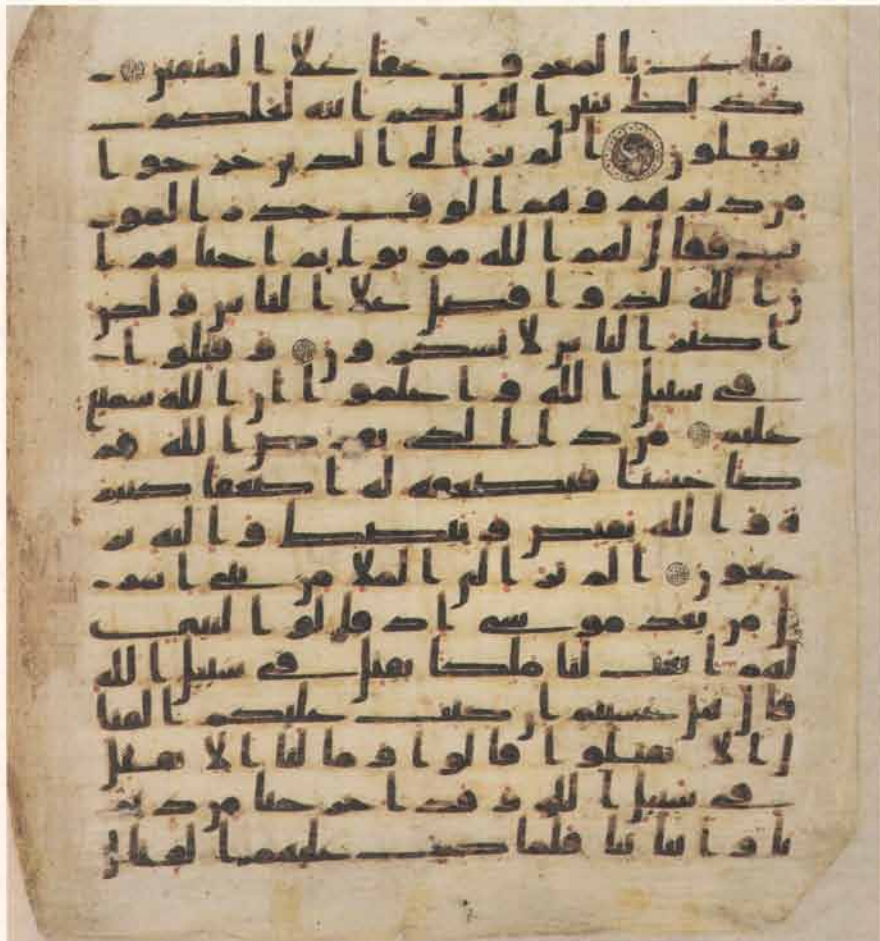 متع بالمعروف حقا علا المتقين
كذلك يبين الله لكم ايته لعلكم
تعقلون الم تر الى الذين خرجوا
من ديرهم وهم الوف حذر المو
ت فقال لهم الله موتوا ثم احيهم ا
ن الله لذو فضل علا الناس ولكن
اكثر الناس لا يشكرون وقتلوا
في سبيل الله واعلموا ان الله سميع
عليم من ذا الذي يقرض الله قر
ضا حسنا فيضعفه له اضعفا كثير
ة والله يقبض ويبسط واليه تر
جعون الم تر الى الملا من بني اسر
ل من بعد موسى اذ قلوا لنبي
لهم ابعث لنا ملكا نقتل في سبيل الله
قال هل عسيتم ان كتب عليكم القتا
ل الا تقتلوا قالوا وما لنا الا نقتل
في سبيل الله وقد اخرجنا من دير
نا وابنائنا فلما كتب عليهم القتال